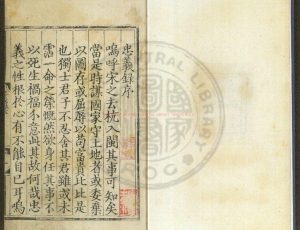 忠義錄序
嗚呼宋之去杭入閩其事可知矣
當是時謀國家守土地者或委棄
以圖存或屈辱以苟富貴比比是
也獨士君子不忍舍其君雖或未
霑一命之榮慨然欲身任其事不
以死生禍福介意此其故何哉忠
義之性根於心有不能自已耳嗚
CENTRAL LIBRARY